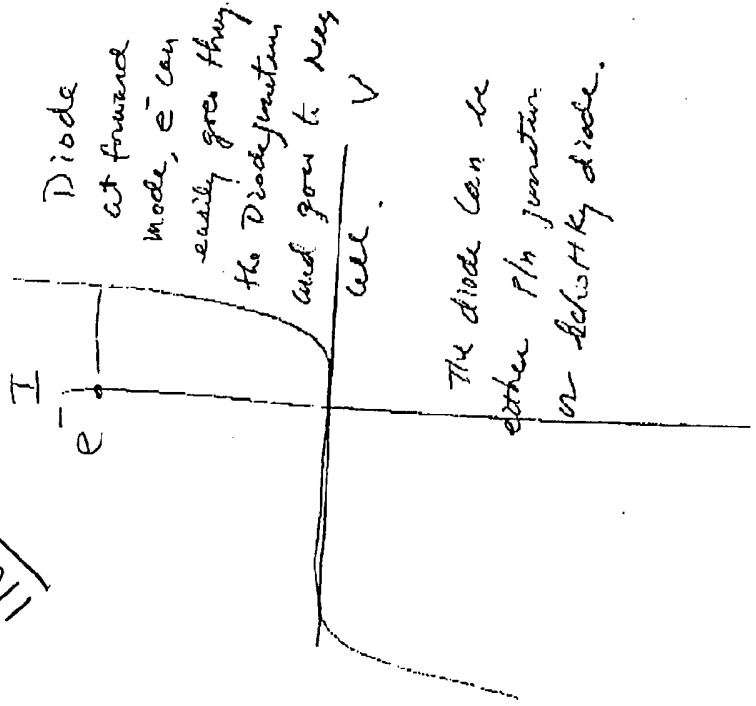 I
e⁻
Diode
at forward
mode, e⁻ can
easily goes thru
the Diode junction
and goes to
cell.
V
The diode can be
either P/n junction
or SchottKy diode.